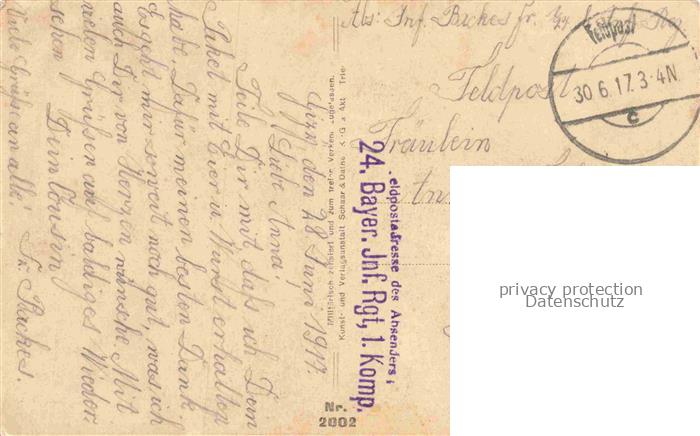 Abs: Inf. Backes Fr.
Feldpost
Feldpost
30.6.17.3-4N.
c
Fräulein
Feldpostadresse des Absenders:
24. Bayer. Inf. Rgt, 1. Komp.
Militärisch zensiert und zum freien Verkehr zugelassen.
Kunst- und Verlagsanstalt Schaar & Dathe, K.-G. a. Akt. Trier
Nr.
2002
den 28 Juni 1917.
Liebe Anna!
Teile Dir mit daß ich Dein
Paket mit Eier u Wurst erhalten
habe. Dafür meinen besten Dank
Es geht mir soweit noch gut, was ich
auch Dir von Herzen wünsche Mit
vielen Grüßen auf baldiges Wieder
sehen Dein Cousin
Fr. Backes.
Viele Grüße an alle.
privacy protection
Datenschutz